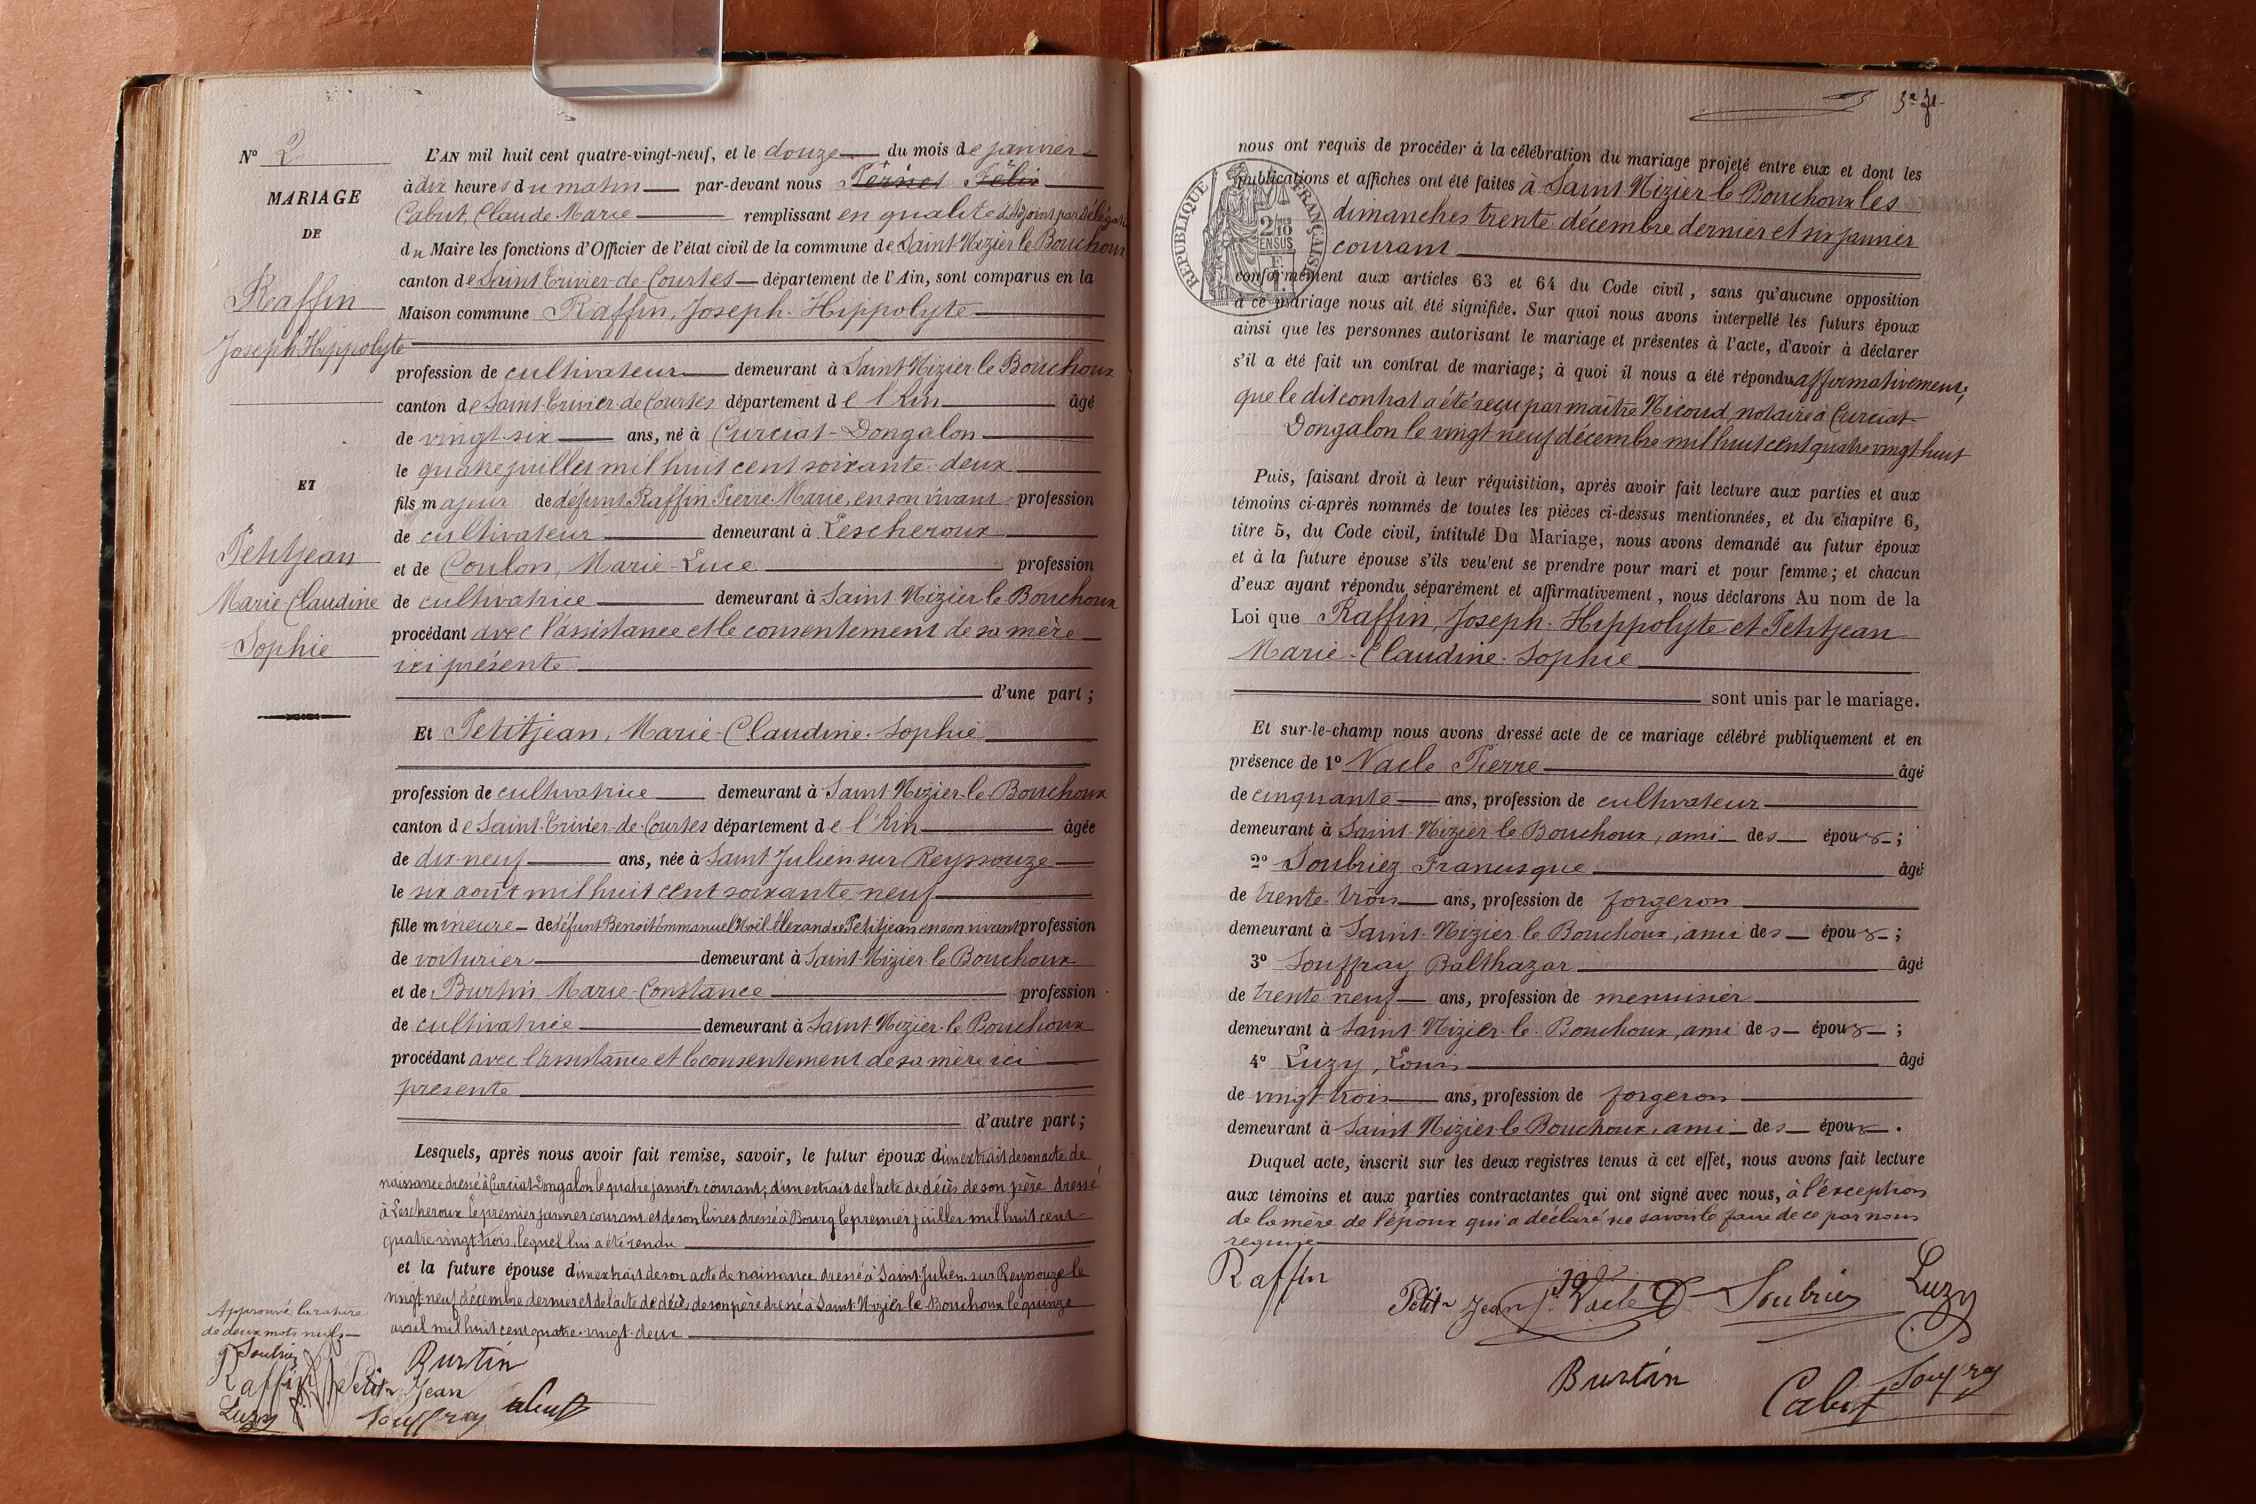 N° 2
MARIAGE
DE
Raffin
Joseph Hippolyte
ET
Petitjean
Marie Claudine
Sophie
L'AN mil huit cent quatre-vingt-neuf, et le douze du mois de janvier
à dix heures du matin par-devant nous Pernet Félix
Cabut, Claude Marie remplissant en qualité d'adjoint par délégation
du Maire les fonctions d'Officier de l'état civil de la commune de Saint-Nizier le Bouchoux
canton de Saint Trivier-de-Courtes département de l'Ain, sont comparus en la
Maison commune Raffin, Joseph-Hippolyte
profession de cultivateur demeurant à Saint Nizier le Bouchoux
canton de Saint-Trivier de Courtes département de l'Ain âgé
de vingt-six ans, né à Curciat-Dongalon
le quatre juillet mil huit cent soixante-deux
fils majeur de défunt Raffin Pierre-Marie, en son vivant profession
de cultivateur demeurant à Lescheroux
et de Coulon, Marie-Luce profession
de cultivatrice demeurant à Saint-Nizier-le-Bouchoux
procédant avec l'assistance et le consentement de sa mère
ici présente
d'une part ;
Et Petitjean, Marie-Claudine-Sophie
profession de cultivatrice demeurant à Saint-Nizier-le Bouchoux
canton de Saint-Trivier-de-Courtes département de l'Ain âgée
de dix-neuf ans, née à Saint Julien sur Reyssouze
le six août mil huit cent soixante neuf
fille mineure de défunt Benoît Emmanuel Noël Alexandre Petitjean en son vivant profession
de voiturier demeurant à Saint-Nizier-le Bouchoux
et de Burtin Marie-Constance profession
de cultivatrice demeurant à Saint-Nizier-le Bouchoux
procédant avec l'assistance et le consentement de sa mère ici
présente
d'autre part ;
Lesquels, après nous avoir fait remise, savoir, le futur époux d'un extrait de son acte de
naissance dressé à Curciat-Dongalon le quatre janvier courant, d'un extrait de l'acte de décès de son père dressé
à Lescheroux le premier janvier courant et de son livret dressé à Bourg le premier juillet mil huit cent
quatre vingt-trois, lequel lui a été rendu
et la future épouse d'un extrait de son acte de naissance dressé à Saint-Julien-sur Reyssouze le
vingt-neuf décembre dernier et de l'acte de décès de son père dressé à Saint-Nizier-le Bouchoux le quinze
avril mil huit cent quatre-vingt-deux
Approuvé la rature
de deux mots nuls
Soubriez
Raffin
Luzy
Petit Jean
Burtin
Souffray
Cabut
3e f
RÉPUBLIQUE FRANÇAISE
2/10 EN SUS
nous ont requis de procéder à la célébration du mariage projeté entre eux et dont les
publications et affiches ont été faites à Saint-Nizier le Bouchoux les
dimanches trente décembre dernier et six janvier
courant
conformément aux articles 63 et 64 du Code civil, sans qu'aucune opposition
à ce mariage nous ait été signifiée. Sur quoi nous avons interpellé les futurs époux
ainsi que les personnes autorisant le mariage et présentes à l'acte, d'avoir à déclarer
s'il a été fait un contrat de mariage ; à quoi il nous a été répondu affirmativement,
que le dit contrat a été reçu par maître Nicoud, notaire à Curciat-
Dongalon le vingt neuf décembre mil huit cent quatre vingt-huit
Puis, faisant droit à leur réquisition, après avoir fait lecture aux parties et aux
témoins ci-après nommés de toutes les pièces ci-dessus mentionnées, et du chapitre 6,
titre 5, du Code civil, intitulé Du Mariage, nous avons demandé au futur époux
et à la future épouse s'ils veulent se prendre pour mari et pour femme ; et chacun
d'eux ayant répondu séparément et affirmativement, nous déclarons Au nom de la
Loi que Raffin, Joseph-Hippolyte et Petitjean
Marie-Claudine-Sophie
sont unis par le mariage.
Et sur-le-champ nous avons dressé acte de ce mariage célébré publiquement et en
présence de 1° Vacle Pierre âgé
de cinquante ans, profession de cultivateur
demeurant à Saint-Nizier le Bouchoux, ami des époux ;
2° Soubriez Francisque âgé
de trente-trois ans, profession de forgeron
demeurant à Saint-Nizier le Bouchoux, ami des époux ;
3° Souffray Balthazar âgé
de trente neuf ans, profession de menuisier
demeurant à Saint Nizier-le-Bouchoux, ami des époux ;
4° Luzy, Louis âgé
de vingt-trois ans, profession de forgeron
demeurant à Saint Nizier le Bouchoux, ami des époux.
Duquel acte, inscrit sur les deux registres tenus à cet effet, nous avons fait lecture
aux témoins et aux parties contractantes qui ont signé avec nous, à l'exception
de la mère de l'époux qui a déclaré ne savoir le faire de ce par nous
requise
Raffin
Petit Jean
P. Vacle
Soubriez
Luzy
Burtin
Cabut
Souffray